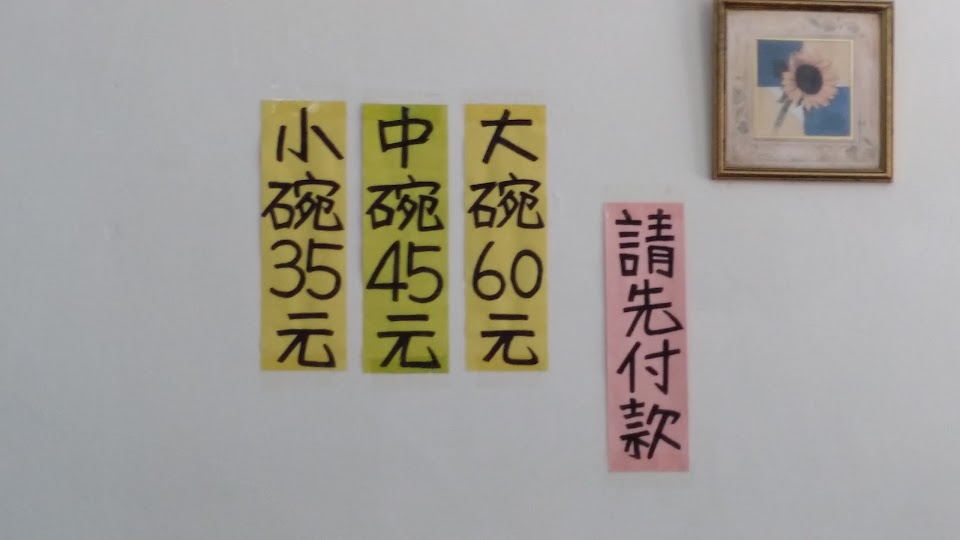 大碗60元
中碗45元
小碗35元
請先付款